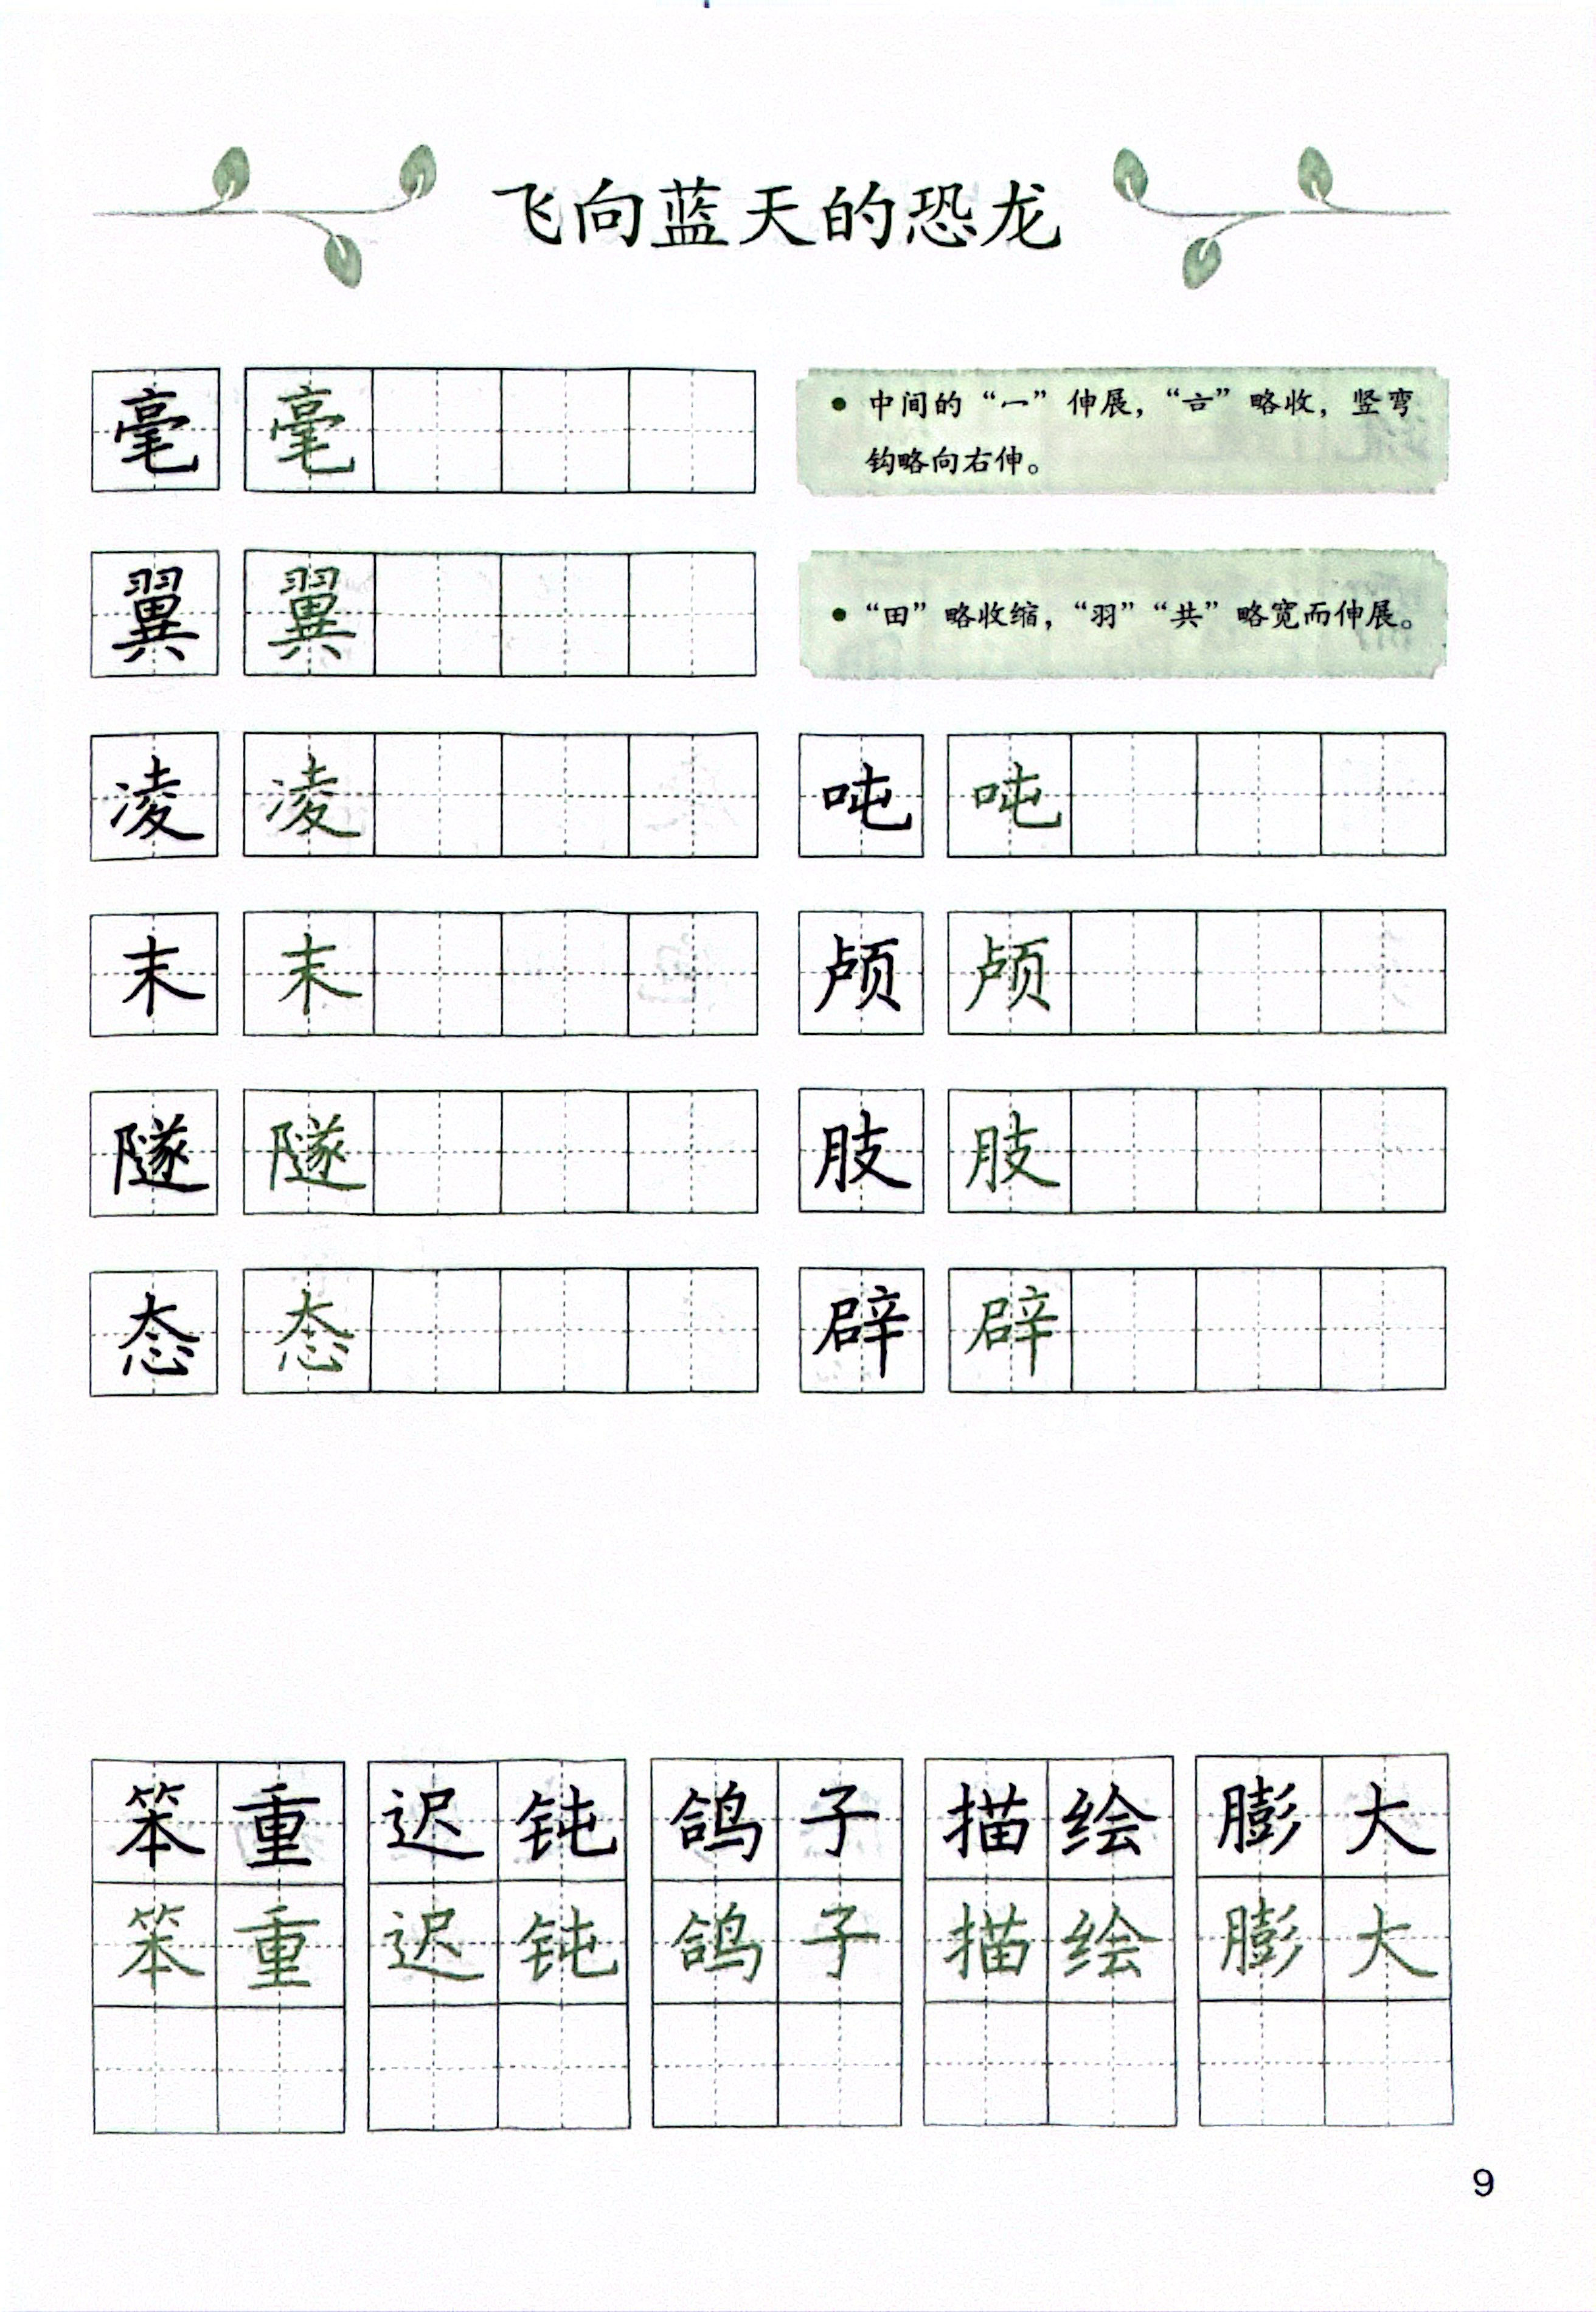 飞向蓝天的恐龙
毫 毫
• 中间的“冖”伸展，“𠮷”略收，竖弯
钩略向右伸。
翼 翼
• “田”略收缩，“羽”“共”略宽而伸展。
凌 凌 吨 吨
末 末 颅 颅
隧 隧 肢 肢
态 态 辟 辟
笨重 迟钝 鸽子 描绘 膨大
笨重 迟钝 鸽子 描绘 膨大
9